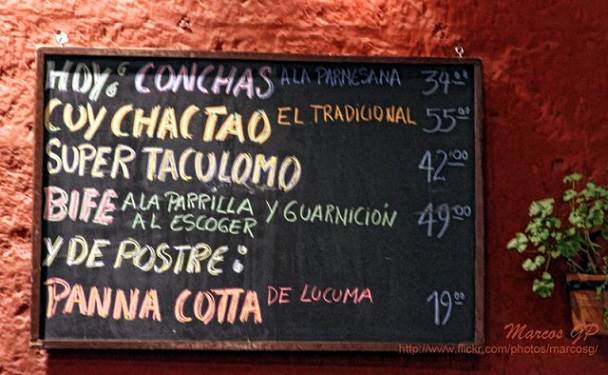 HOY: CONCHAS A LA PARMESANA 34.00
CUY CHACTAO EL TRADICIONAL 55.00
SUPER TACULOMO 42.00
BIFE A LA PARRILLA Y GUARNICIÓN 49.00
AL ESCOGER
Y DE POSTRE:
PANNA COTTA DE LUCUMA 19.00
Marcos GP
http://www.flickr.com/photos/marcosg/